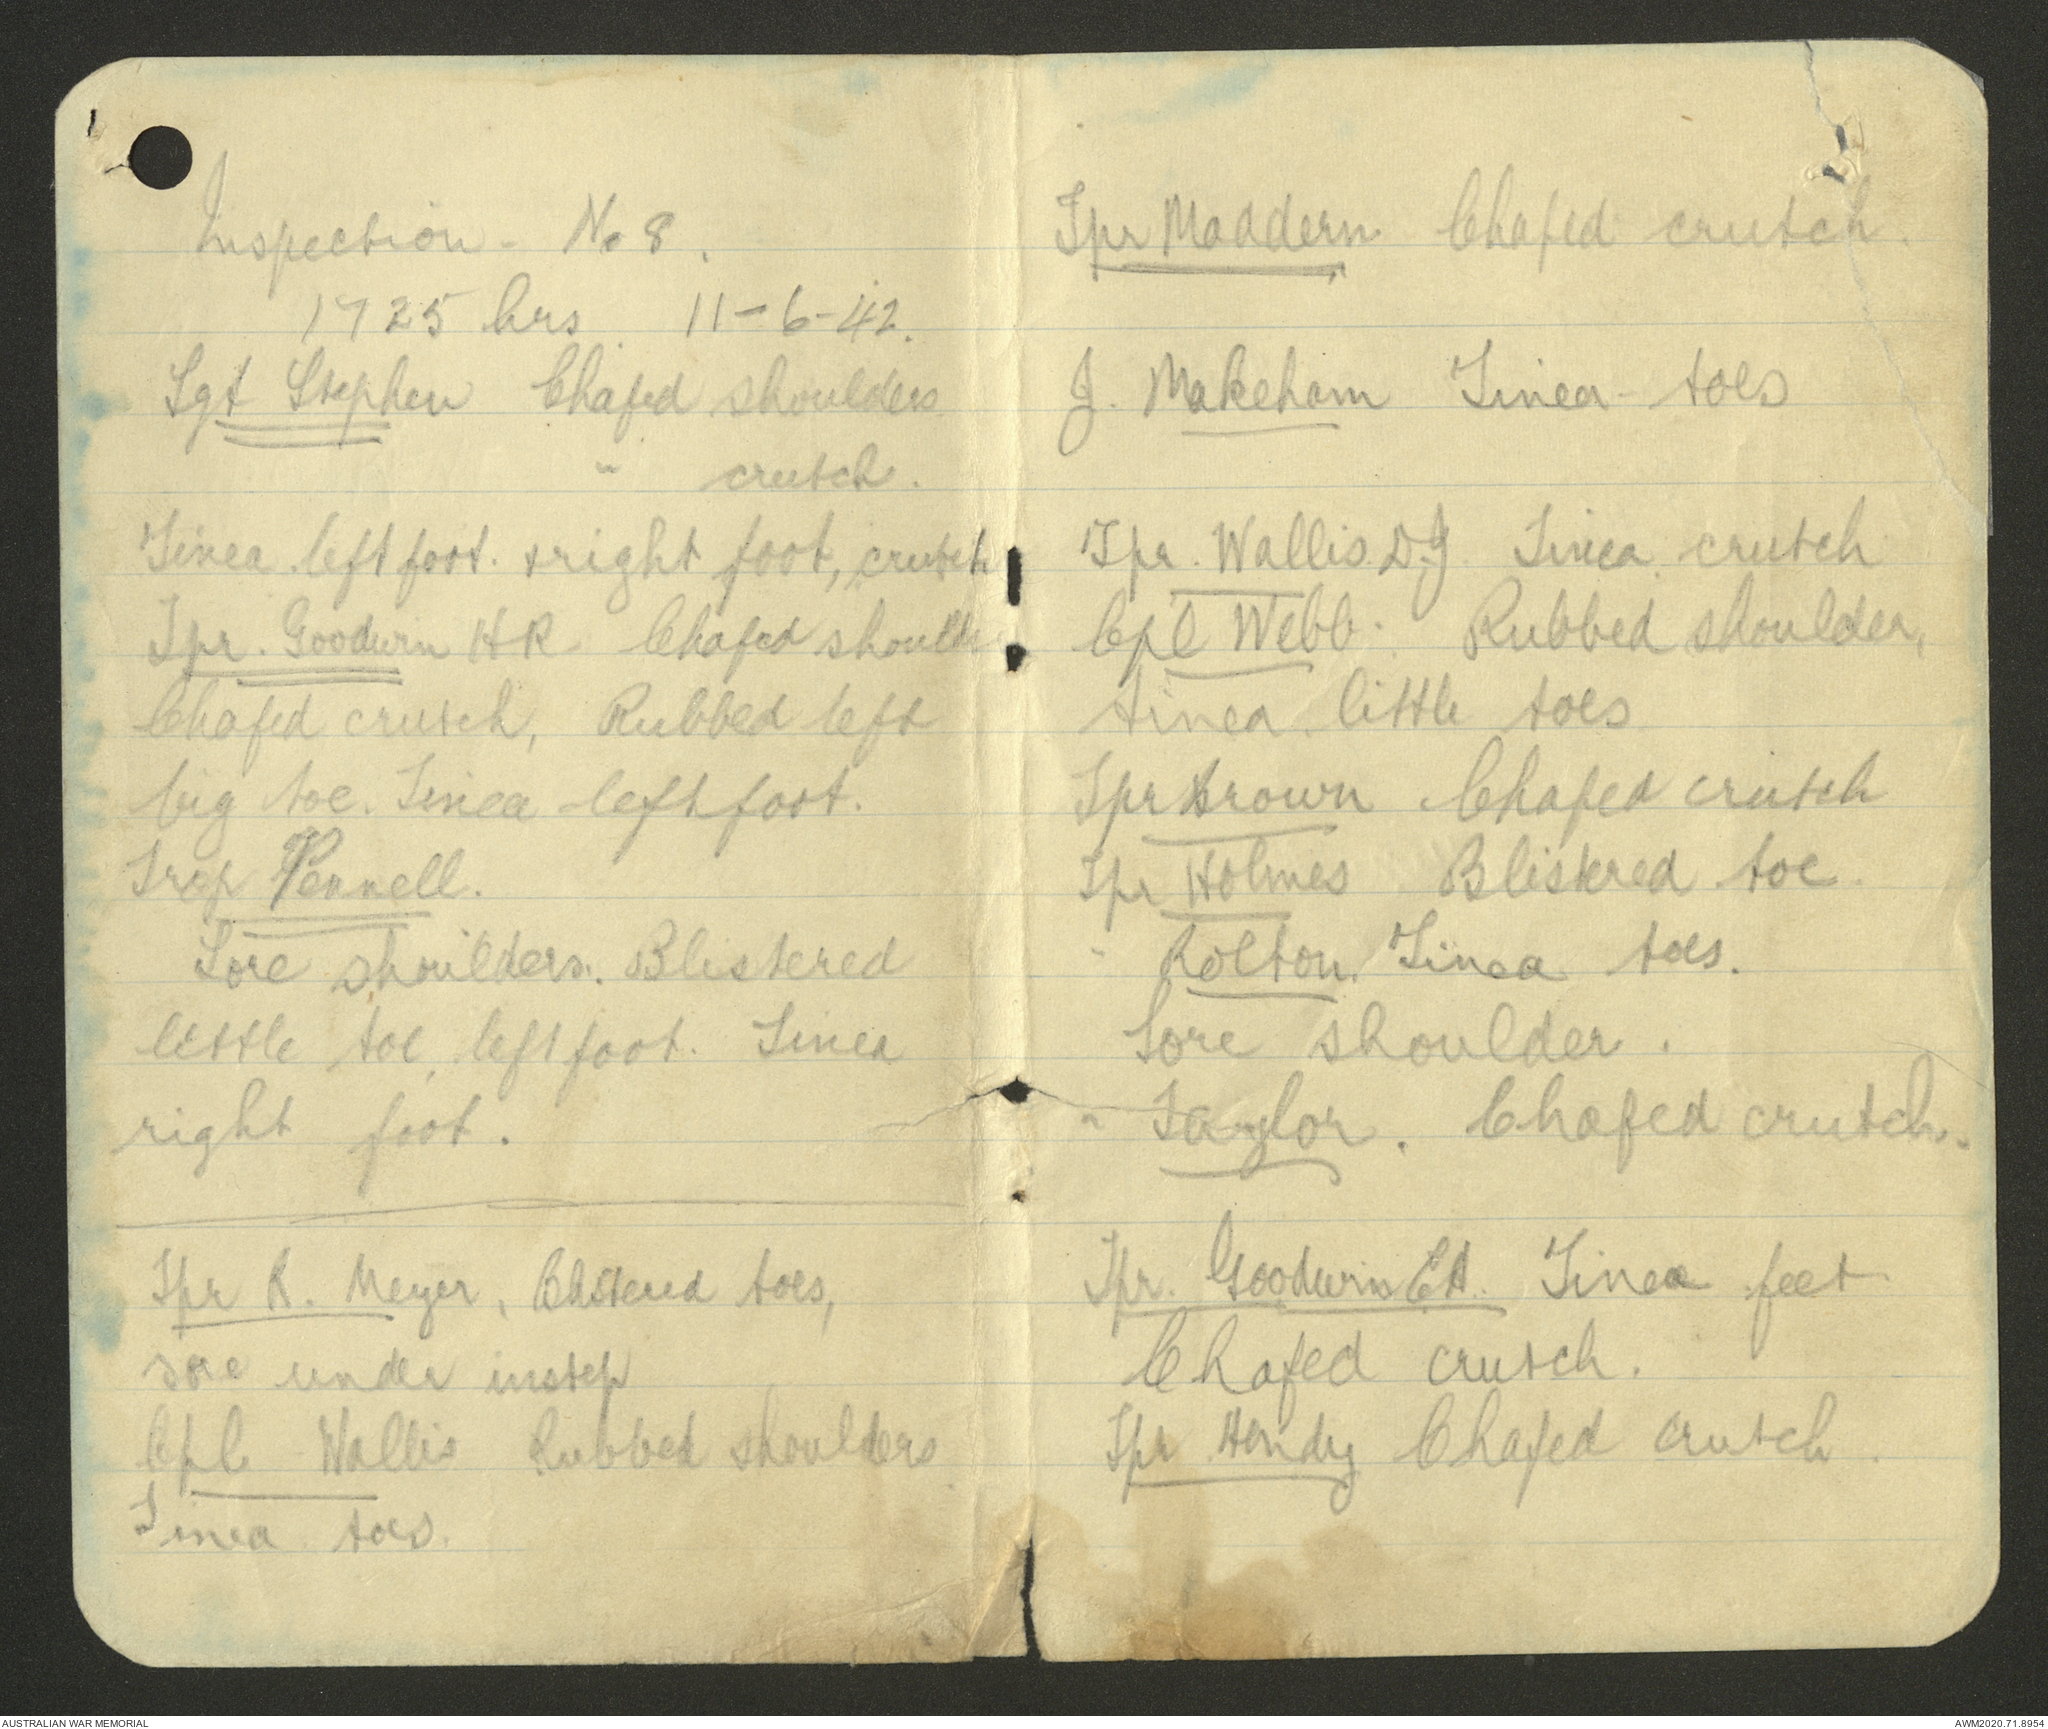 Inspection - No 8.
1725 hrs 11-6-42.
Sgt Stephen Chafed shoulders
" crutch.
Tinea left foot. & right foot, crutch
Tpr. Goodwin HR Chafed shoulder
Chafed crutch, Rubbed left
big toe. Tinea left foot.
Trop Pennell.
Sore shoulders. Blistered
little toe, left foot. Tinea
right foot.
Tpr R. Meyer, Blistered toes,
sore under instep
Cpl Wallis Rubbed shoulders
Tinea toes.
Tpr Maddern Chafed crutch.
J. Makeham Tinea - toes
Tpr. Wallis D.J. Tinea crutch
Cpl Webb. Rubbed shoulder,
tinea little toes
Tpr Brown Chafed crutch
Tpr Holmes Blistered toe.
" Rolton. Tinea toes.
Sore shoulder.
" Taylor. Chafed crutch.
Tpr. Goodwin EA. Tinea feet
Chafed crutch.
Tpr Hendy Chafed crutch.
AUSTRALIAN WAR MEMORIAL
AWM2020.71.8954